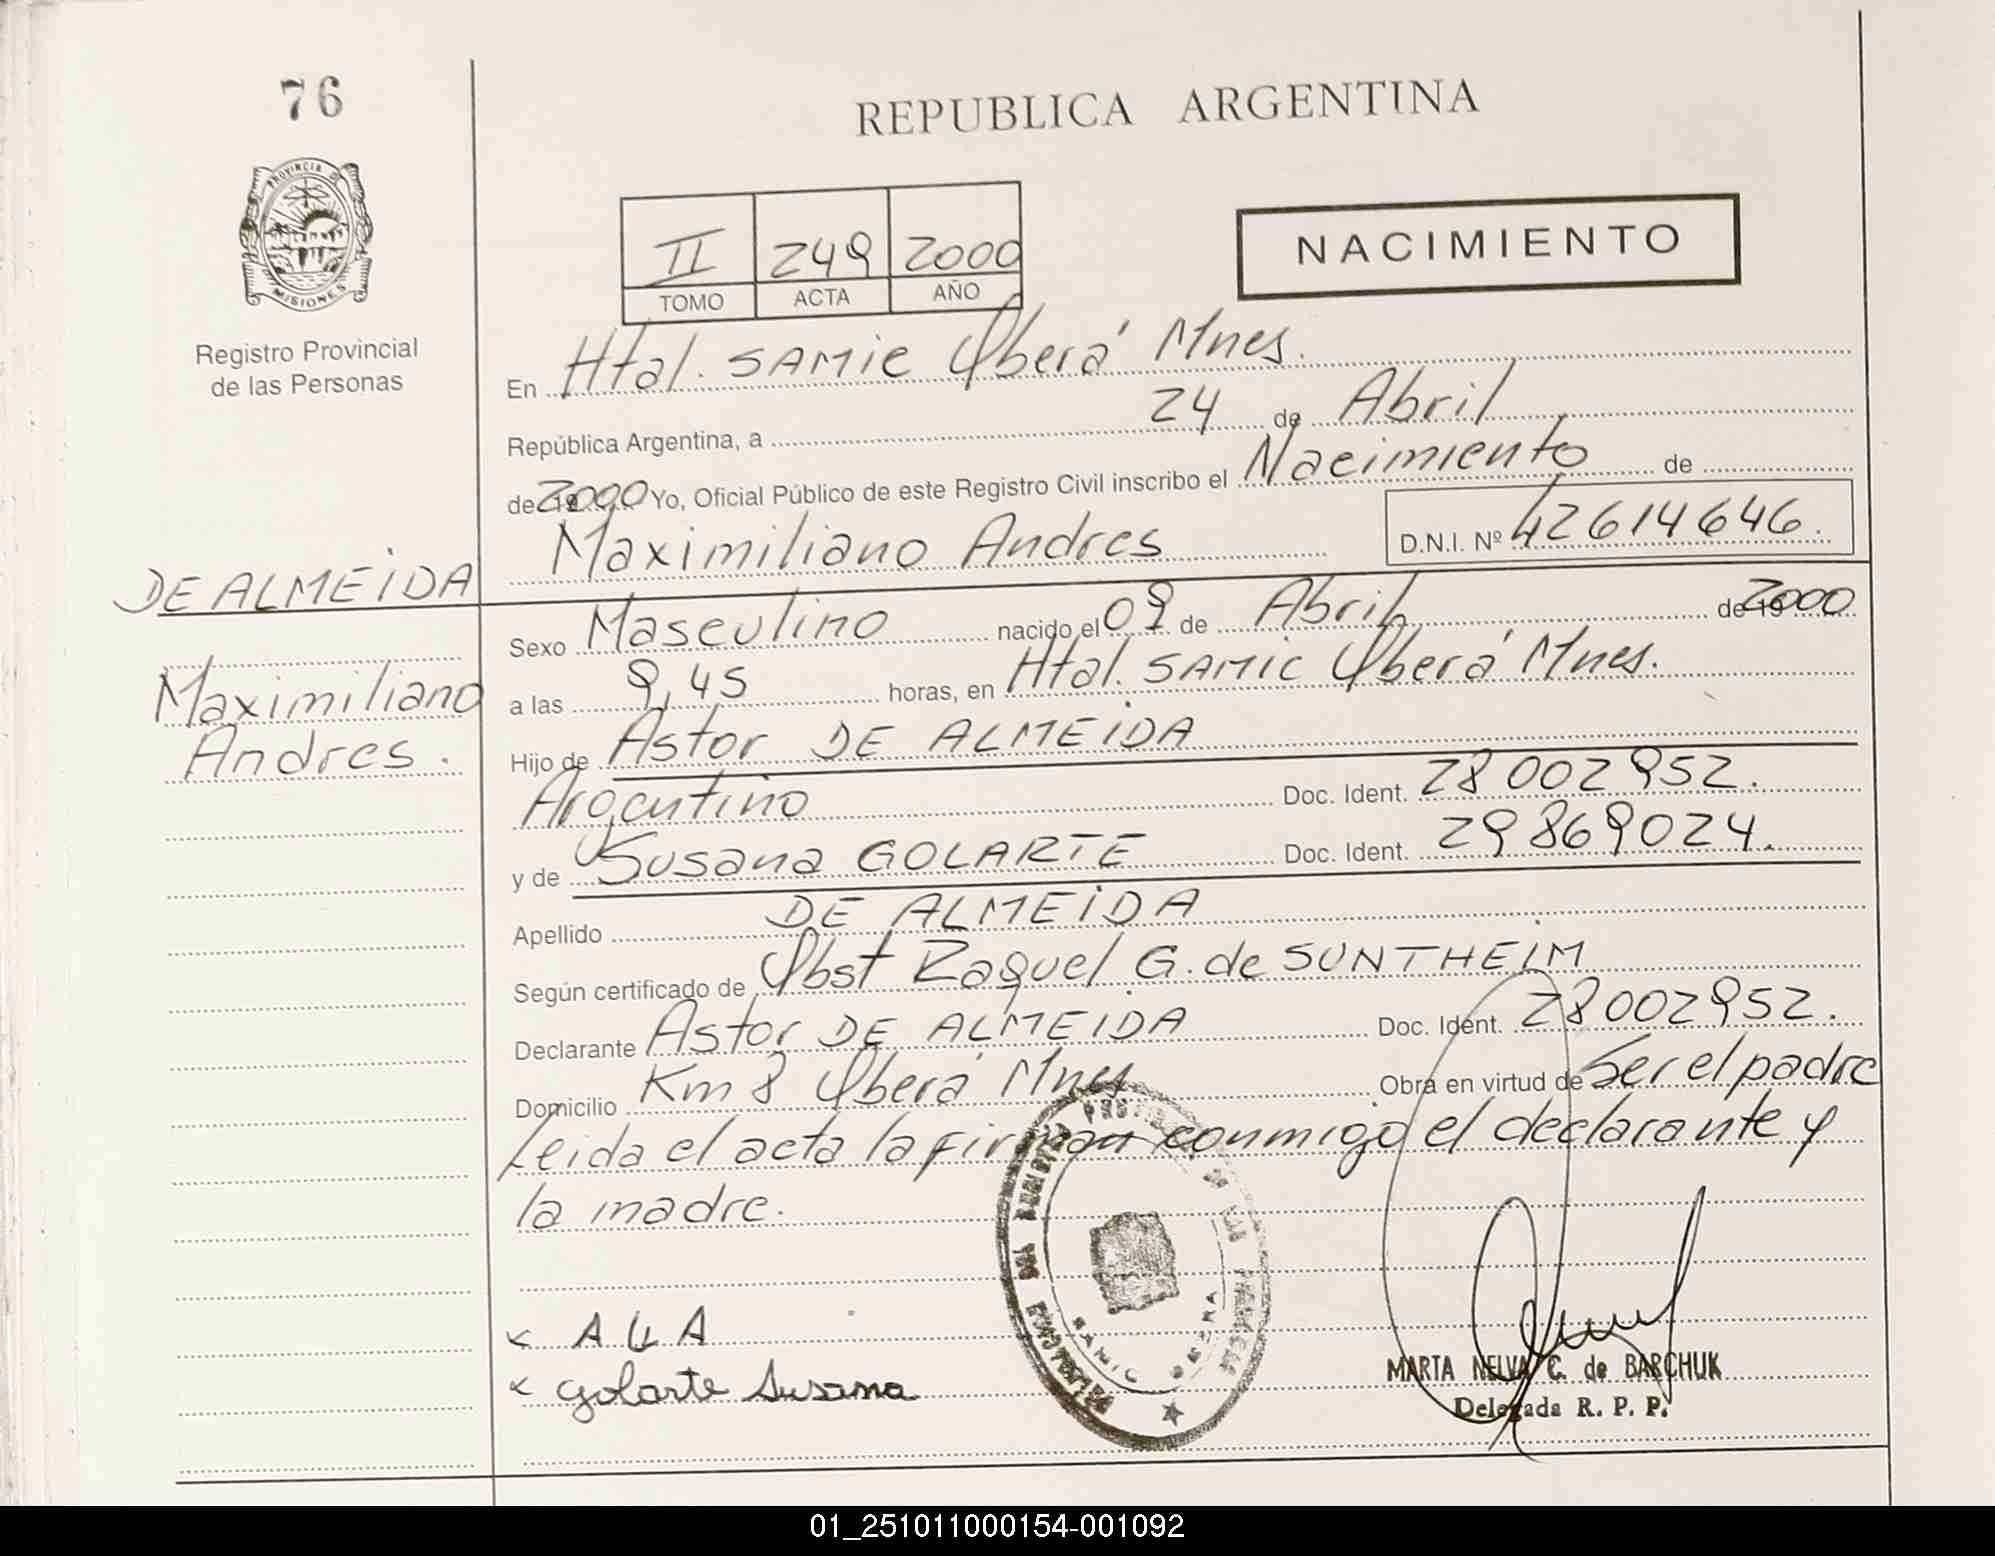 76
REPUBLICA ARGENTINA
PROVINCIA DE
MISIONES
Registro Provincial
de las Personas
II 249 2000
TOMO ACTA AÑO
NACIMIENTO
En Htal. SAMIC Oberá Mnes.
República Argentina, a 24 de Abril
de 2000 Yo, Oficial Público de este Registro Civil inscribo el Nacimiento de
Maximiliano Andres D.N.I. Nº 42614646.
DE ALMEIDA
Maximiliano
Andres.
Sexo Masculino nacido el 09 de Abril de 19 2000
a las 9,45 horas, en Htal. SAMIC Oberá Mnes.
Hijo de Astor DE ALMEIDA
Argentino Doc. Ident. 28 002 952.
y de Susana GOLARTE Doc. Ident. 29 869 024.
Apellido DE ALMEIDA
Según certificado de Obst Raquel G. de SUNTHEIM
Declarante Astor DE ALMEIDA Doc. Ident. 28 002 952.
Domicilio Km 8 Oberá Mnes Obra en virtud de Ser el padre
Leida el acta la firman conmigo el declarante y
la madre.
SAMIC OBERA
golarte Susana
MARTA NELVA C. de BARCHUK
Delegada R. P. P.
01_251011000154-001092